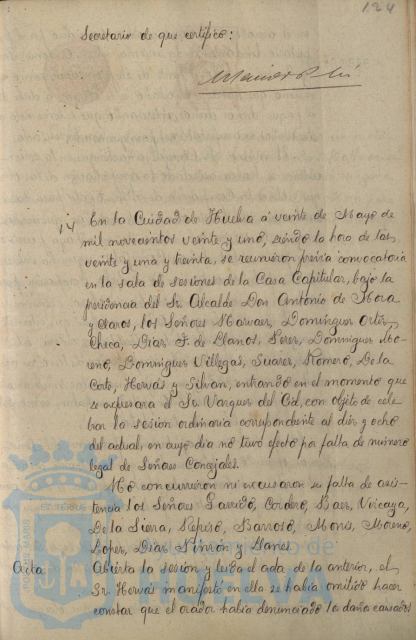 124
Secretario de que certifico:
14
En la Ciudad de Huelva á veinte de Mayo de
mil novecientos veinte y uno, siendo la hora de las
veinte y una y treinta, se reunieron previa convocatoria
en la sala de sesiones de la Casa Capitular, bajo la
presidencia del Sr. Alcalde Don Antonio de Mora
y Claros, los Señores Narvaez, Dominguez Ortiz,
Checa, Diaz F. de Llanos, Perez, Dominguez Mo-
reno, Dominguez Villegas, Suarez, Romero, De la
Corte, Hervás y Silvan, entrando en el momento que
se expresara el Sr. Vazquez del Cid, con objeto de cele-
brar la sesión ordinaria correspondiente al diez y ocho
del actual, en cuyo dia no tuvo efecto por falta de número
legal de Señores Concejales.
No concurrieron ni excusaron su falta de asis-
tencia los Señores Garrido, Cordero, Baez, Vizcaya,
De la Sierra, Repiso, Barroso, Moris, Moreno,
Lopez, Diaz Pinzón y Llanes.
Acta.
Abierta la sesión y leida el acta de la anterior, el
Sr. Hervás manifestó en ella se habia omitido hacer
constar que el orador habia denunciado los daños causados